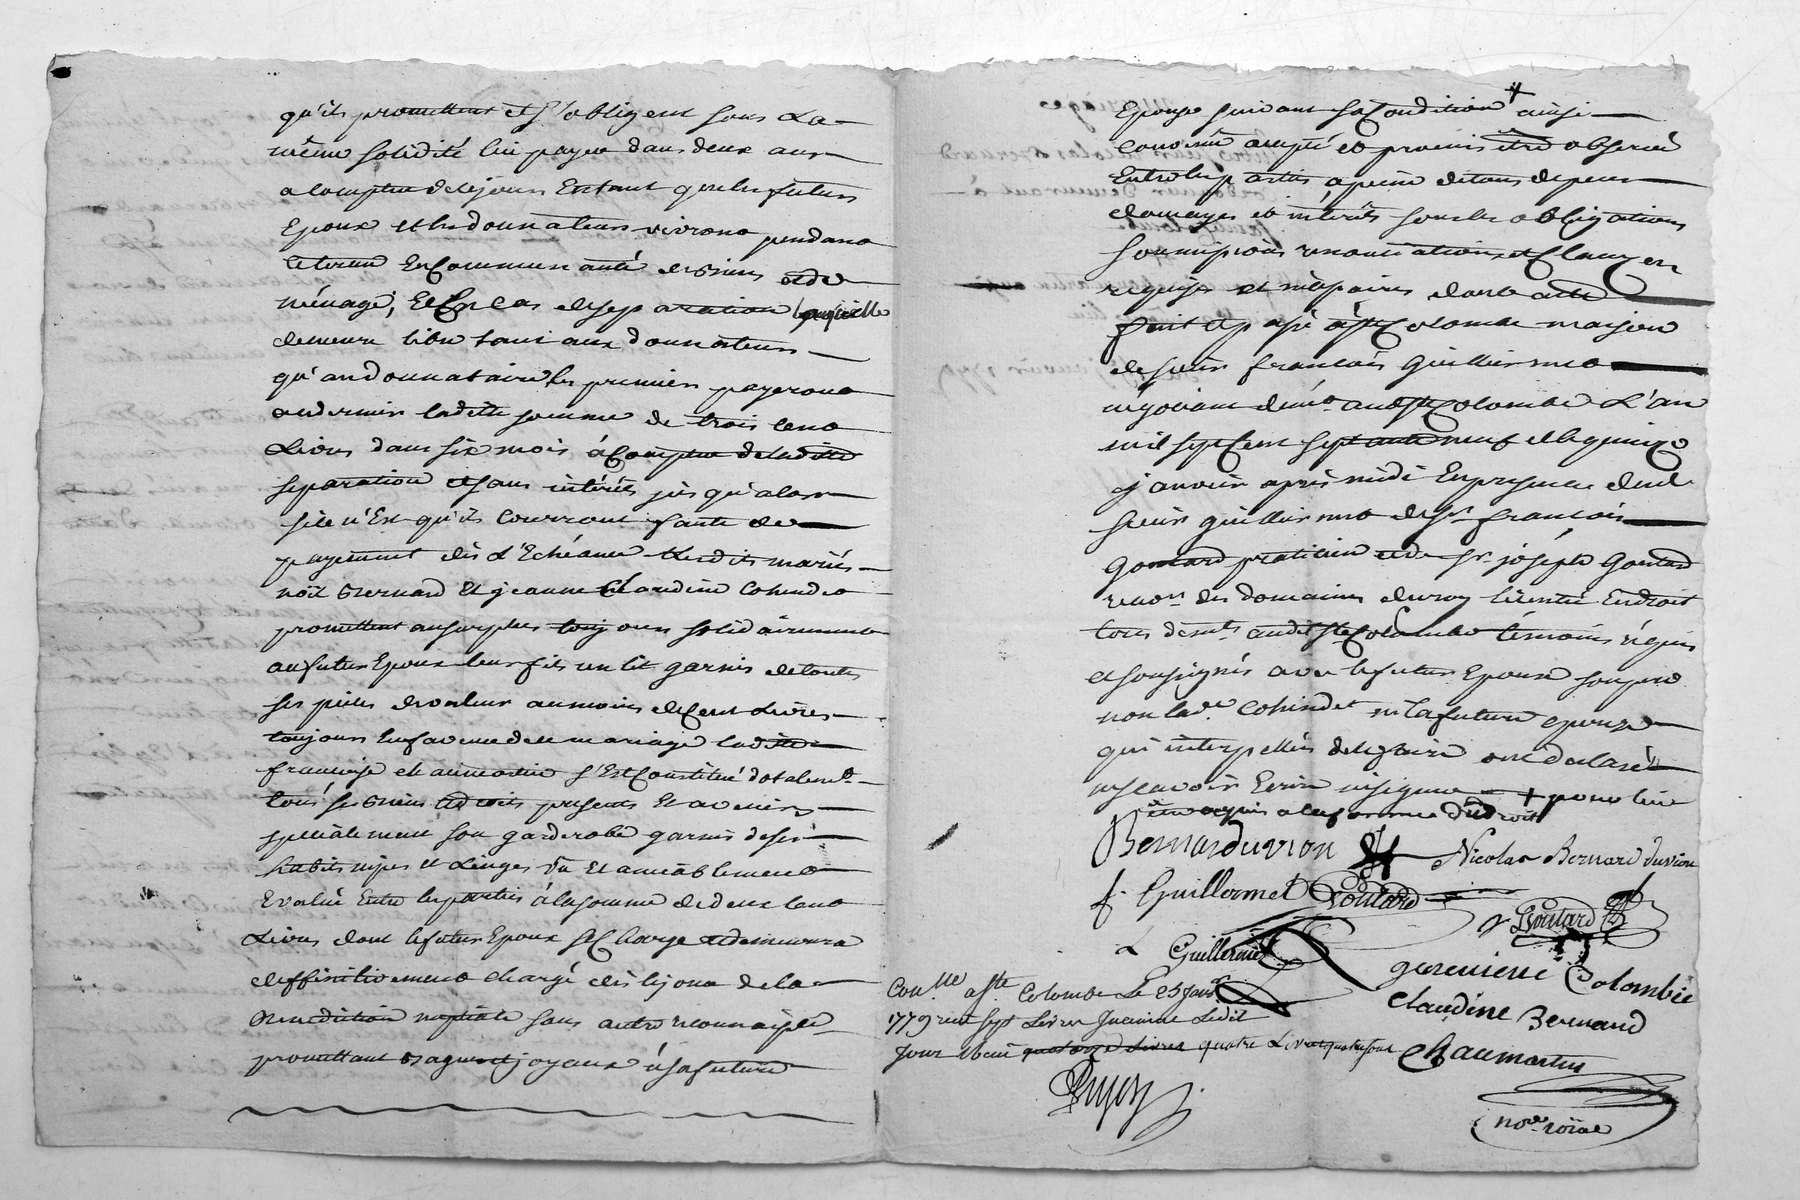 qu'ils promettent et s'obligent sous la
même solidité lui payer dans deux ans
a compter de ce jour Entant que les futurs
Epoux et les donnateurs vivront pendant
le terme En Communauté de biens et de
ménage, Et En Cas de separation laquelle
demeure libre tant aux donnateurs
qu'au donnataire les premiers payeront
au dernier ladite somme de trois cent
Livres dans six mois à Compter de ladite
separation et sans intérêts jusqu'alors
si ce n'Est qu'ils courront faute de
payement dès L'Echéance lesdits mariés
noël Bernard Et jeanne Claudine Cohindet
promettent au surplus toujours solidairement
au futur Epoux leur fils un lit garni de toutes
ses pièces de valeur au moins de Cent Livres
toujours En faveur de ce mariage ladite
françoise chaumartin s'Est Constitué dotalemt
tous ses biens et droits présents Et avenir
specialement son garderobe garni de ses
habits nipes et Linges vu Et amiablement
Evalué Entre les parties à la somme de deux Cent
Livres dont le futur Epoux se Charge et demeurera
deffinitivement chargé dès le jour de la
Benediction nuptiale sans autre reconnaissce
promettant bagues et joyaux à sa future
Epouse suivant sa Condition + ainsi
Convenu accepté et promis être observé
Entre les parties à peine de tous depens
domages et intérêts sous les obligations
soumissions renonciations et Clauses
requises et nécessaires dont acte
fait et passé à ste Colombe maison
de sieur françois Guillermet
négociant demt audit ste Colombe L'an
mil sept Cent septante neuf et le quinze
janvier après midi En presence dudt
sieur guillermet de sr françois
Goutard praticien et de sr joseph Goutard
recevr des domaines du roy licentié En droit
tous demts audit ste Colombe témoins réquis
et soussignés avec le futur Epoux son pere
non lade Cohindet ni la future epouse
qui interpellés de le faire ont declaré
ne scavoir Ecrire ni signer + pour lui
être acquis a la forme du droit
Bernard duvion Nicolas Bernard duvion
f. Guillermet Goutard
Goutard
Guillermet
genevieve Colombie
claudine Bernard
Chaumartin
nore roial
Conlle à ste Colombe Le 25 janvr
1779 reçu sept Livres Insinué Ledit
jour reçu quatorze Livres quatre Livres quatre sous